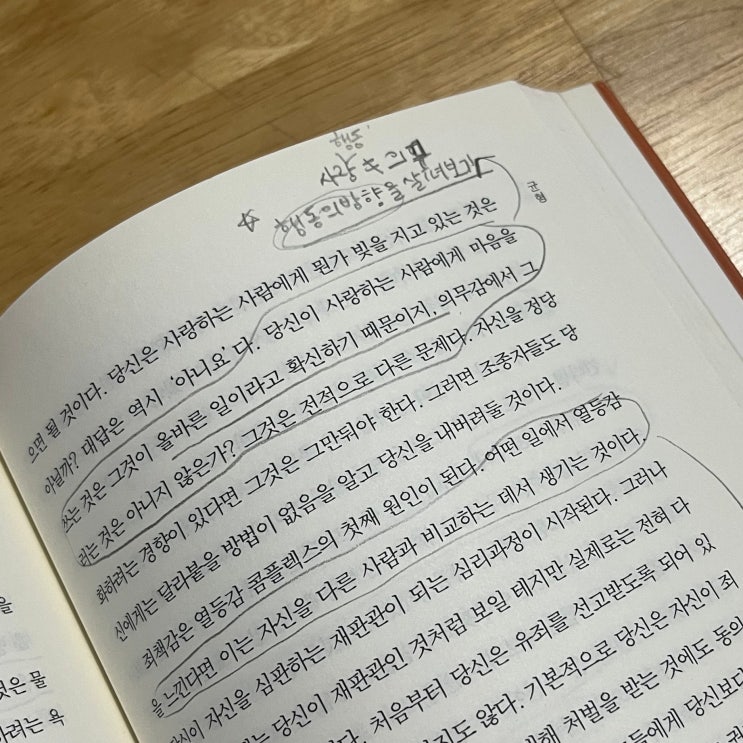 행동
사랑 ≠
☆ 행동의 방향을 살펴보기
균형
으면 될 것이다. 당신은 사랑하는 사람에게 뭔가 빚을 지고 있는 것은
아닐까? 대답은 역시 ‘아니요’다. 당신이 사랑하는 사람에게 마음을
쓰는 것은 그것이 올바른 일이라고 확신하기 때문이지, 의무감에서 그
러는 것은 아니지 않은가? 그것은 전적으로 다른 문제다. 자신을 정당
화하려는 경향이 있다면 그것은 그만둬야 한다. 그러면 조종자들도 당
신에게는 달라붙을 방법이 없음을 알고 당신을 내버려둘 것이다.
죄책감은 열등감 콤플렉스의 첫째 원인이 된다. 어떤 일에서 열등감
을 느낀다면 이는 자신을 다른 사람과 비교하는 데서 생기는 것이다.
당신이 자신을 심판하는 재판관이 되는 심리과정이 시작된다. 그러나
는 당신이 재판관인 것처럼 보일 테지만 실제로는 전혀 다
다. 처음부터 당신은 유죄를 선고받도록 되어 있
지도 않다. 기본적으로 당신은 자신이 죄
처벌을 받는 것에도 동의
들에게 당신보다
을
것은 물
하려는 욕